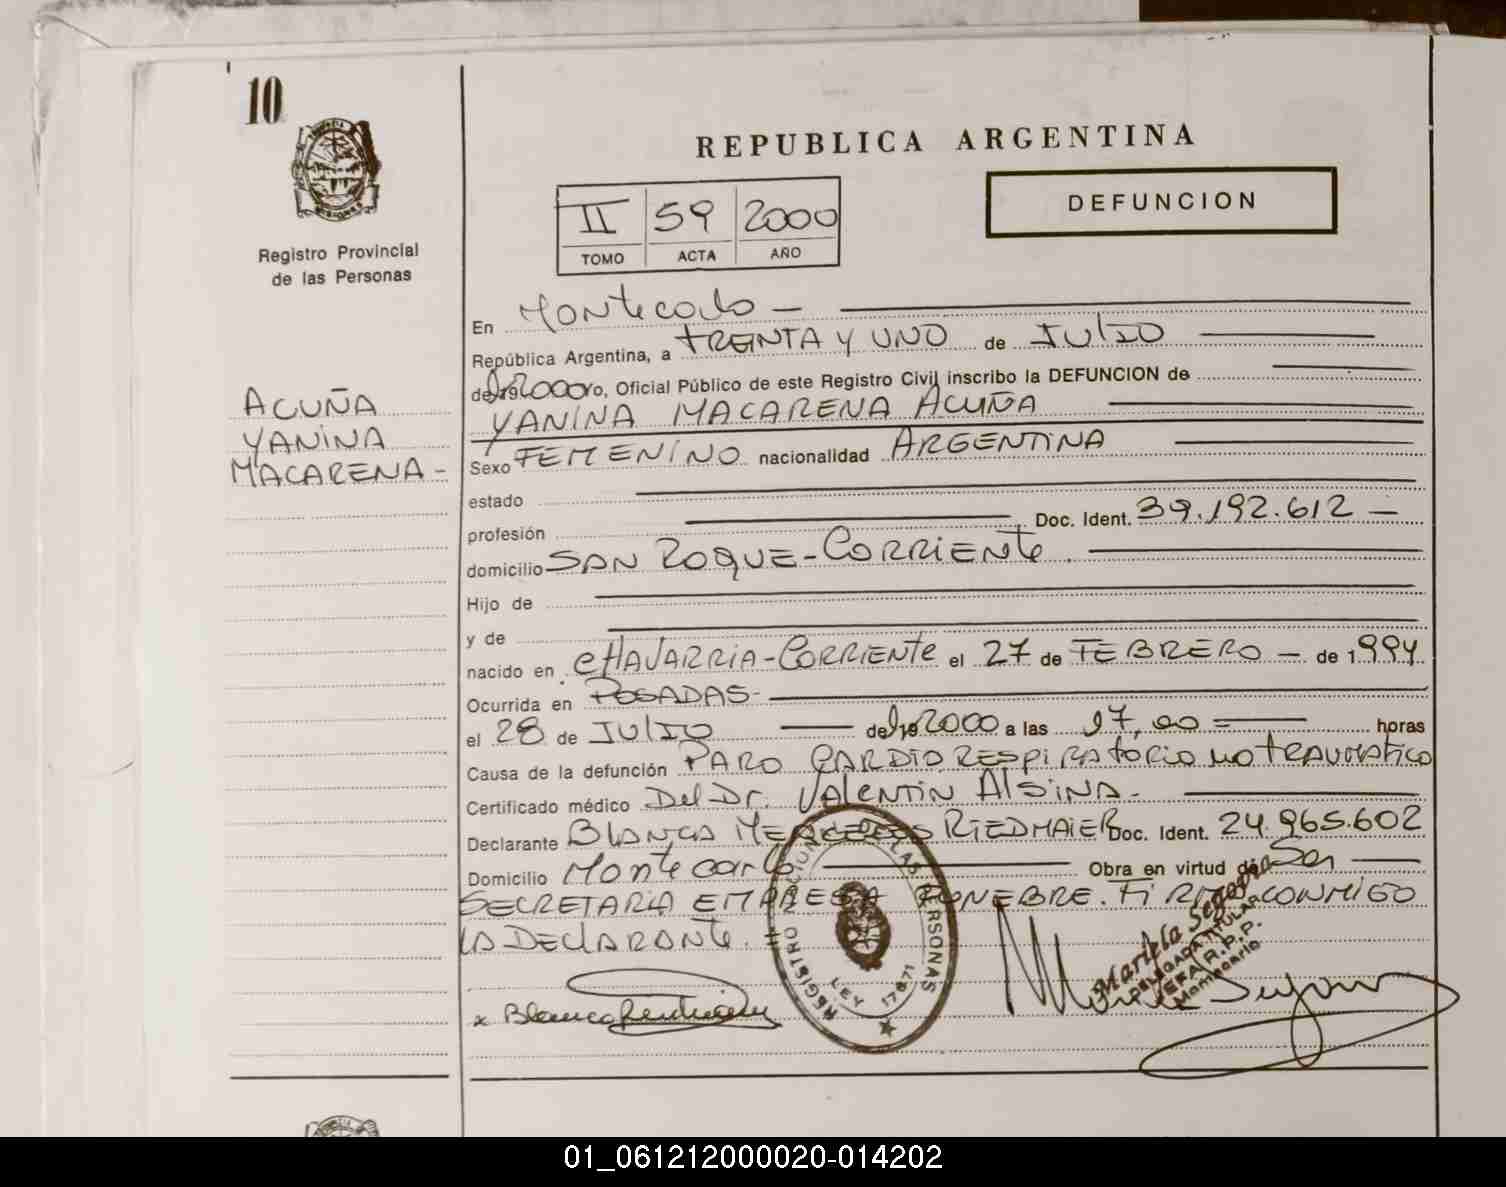 10
Registro Provincial
de las Personas
ACUÑA
YANINA
MACARENA -
REPUBLICA ARGENTINA
DEFUNCION
II 59 2000
TOMO ACTA AÑO
En Montecarlo -
República Argentina, a TREINTA Y UNO de JULIO
de 2000 yo, Oficial Público de este Registro Civil inscribo la DEFUNCION de
YANINA MACARENA ACUÑA
Sexo FEMENINO nacionalidad ARGENTINA
estado
profesión Doc. Ident. 39.192.612 -
domicilio SAN ROQUE - CORRIENTE
Hijo de
y de
nacido en CHAVARRIA - CORRIENTE el 27 de FEBRERO - de 1994
Ocurrida en POSADAS -
el 28 de JULIO de 2000 a las 17,00 = horas
Causa de la defunción PARO CARDIO RESPIRATORIO NO TRAUMATICO
Certificado médico Del Dr. VALENTIN ALSINA -
Declarante BLANCA MERCEDES RIEDMAIER Doc. Ident. 24.965.602
Domicilio Monte carlo Obra en virtud de Ser
SECRETARIA EMPRESA FUNEBRE. FIRMA CONMIGO
LA DECLARANTE.
REGISTRO NACIONAL DE LAS PERSONAS
LEY 17671
x Blanca
Mariela Segovia
DELEGADA TITULAR
JEFA R.P.P.
01_061212000020-014202